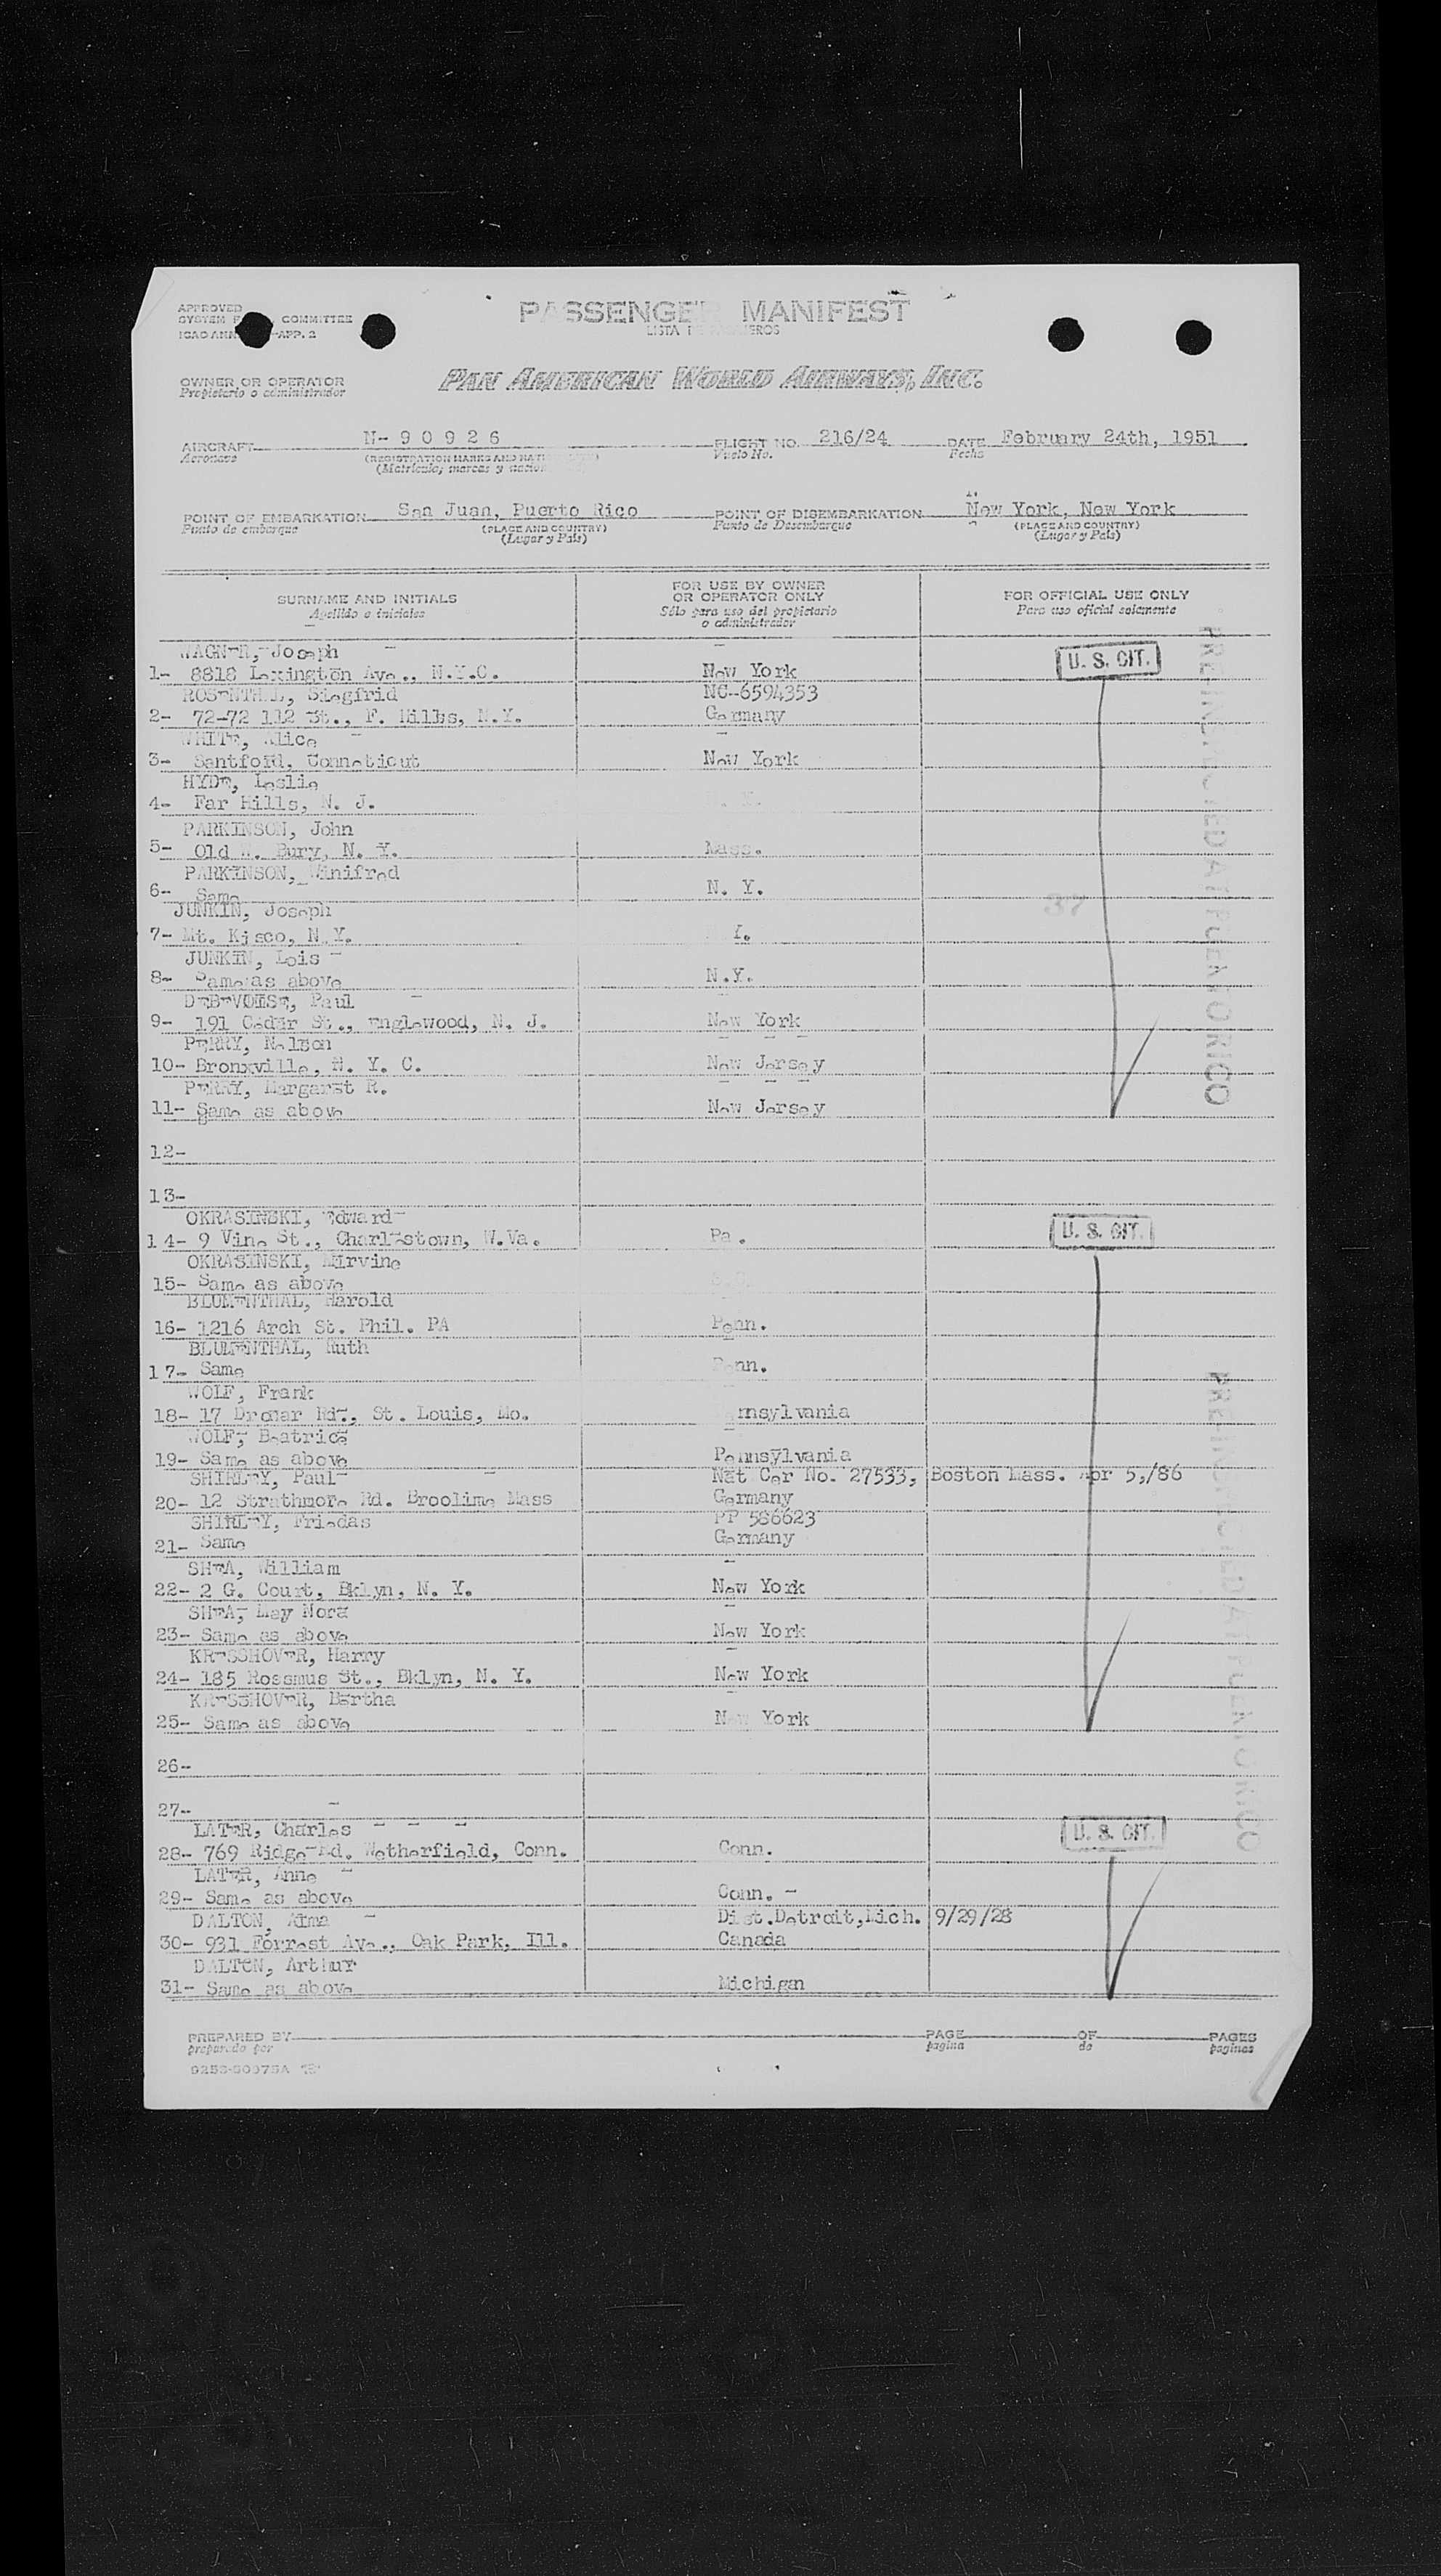 APPROVED
SYSTEM COMMITTEE
APP. 2
PASSENGER MANIFEST
LISTA
OWNER OR OPERATOR
Propietario o administrador
PAN AMERICAN WORLD AIRWAYS, INC.
AIRCRAFT N- 9 0 9 2 6 FLIGHT NO. 216/24 DATE February 24th, 1951
Aeronave (REGISTRATION MARKS AND Vuelo No. Fecha
(Matricula; marcas y
POINT OF EMBARKATION San Juan, Puerto Rico POINT OF DISEMBARKATION New York, New York
Punto de embarque (PLACE AND COUNTRY) Punto de Desembarque (PLACE AND COUNTRY)
(Lugar y País) (Lugar y País)
SURNAME AND INITIALS
Apellido e iniciales
FOR USE BY OWNER
OR OPERATOR ONLY
Sólo para uso del propietario
o administrador
FOR OFFICIAL USE ONLY
Para uso oficial solamente
WAGNER, Joseph
1- 8818 Lexington Ave., N.Y.C. New York U. S. CIT.
ROSENTHAL, Siegfrid NC-6594353
2- 72-72 112 St., F. Hills, N.Y. Germany
WHITE, Alice
3- Santford, Connecticut New York
HYDE, Leslie
4- Far Hills, N. J.
PARKINSON, John
5- Old W. Bury, N. Y. Mass.
PARKINSON, Winifred
6- Same N. Y.
37
JUNKIN, Joseph
7- Mt. Kisco, N.Y. Y.
JUNKIN, Lois
8- Same as above N.Y.
DEBEVOISE, Paul
9- 191 Cedar St., Englewood, N. J. New York
PERRY, Nelson
10- Bronxville, N. Y. C. New Jersey
PERRY, Margaret R.
11- Same as above New Jersey
PREINSPECTED AT PUERTO RICO
12-
13-
OKRASINSKI, Edward
14- 9 Vine St., Charlestown, W.Va. Pa. U. S. CIT.
OKRASINSKI, Mirvine
15- Same as above
BLUMENTHAL, Harold
16- 1216 Arch St. Phil. PA Penn.
BLUMENTHAL, Ruth
17- Same Penn.
WOLF, Frank
18- 17 Dromar Rd., St. Louis, Mo. nnsylvania
WOLF, Beatrice
19- Same as above Pennsylvania
SHIRLEY, Paul Nat Cer No. 27533, Boston Mass. Apr 5,/86
20- 12 Strathmore Rd. Brooline Mass Germany
SHIRLEY, Friedas PP 586623
21- Same Germany
SHEA, William
22- 2 G. Court, Bklyn, N. Y. New York
SHEA, May Nora
23- Same as above New York
KRESSHOVER, Harry
24- 185 Rossmus St., Bklyn, N. Y. New York
KRESSHOVER, Bertha
25- Same as above New York
PREINSPECTED AT PUERTO RICO
26-
27-
LATER, Charles
28- 769 Ridge Rd. Wetherfield, Conn. Conn. U. S. CIT.
LATER, Anne
29- Same as above Conn. -
DALTON, Alma Dist.Detroit,Mich. 9/29/28
30- 931 Forrest Ave., Oak Park, Ill. Canada
DALTON, Arthur
31- Same as above Michigan
PREPARED BY PAGE OF PAGES
preparado por pagina de paginas